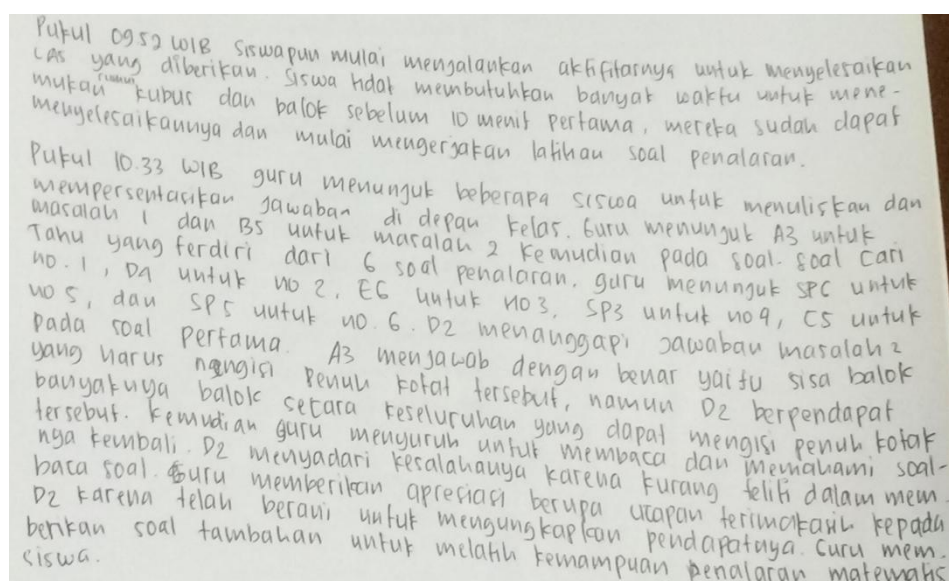 Pukul 0952 WIB Siswapun mulai menjalankan aktifitasnya untuk menyelesaikan
LAS yang diberikan. Siswa tidak membutuhkan banyak waktu untuk mene-
mukan rumus kubus dan balok sebelum 10 menit pertama, mereka sudah dapat
menyelesaikannya dan mulai mengerjakan latihan soal penalaran.
Pukul 10.33 WIB guru menunjuk beberapa siswa untuk menuliskan dan
mempersentasikan jawaban di depan kelas. Guru menunjuk A3 untuk
masalah 1 dan B5 untuk masalah 2 Kemudian pada soal-soal Cari
Tahu yang terdiri dari 6 soal penalaran, guru menunjuk SPC untuk
no. 1, D4 untuk no 2, E6 untuk no 3, SP3 untuk no 4, C5 untuk
no 5, dan SP5 untuk no. 6. D2 menanggapi jawaban masalah 2
pada soal pertama. A3 menjawab dengan benar yaitu sisa balok
yang harus nengisi penuh kotat tersebut, namun D2 berpendapat
banyaknya balok secara keseluruhan yang dapat mengisi penuh kotak
tersebut. Kemudian guru menyuruh untuk membaca dan memahami soal-
nya kembali. D2 menyadari kesalahanya karena kurang teliti dalam mem-
baca soal. Guru memberikan apresiasi berupa ucapan terimakasih kepada
D2 karena telah berani untuk mengungkapkan pendapatnya. Guru mem-
berikan soal tambahan untuk melatih kemampuan penalaran matematis
siswa.